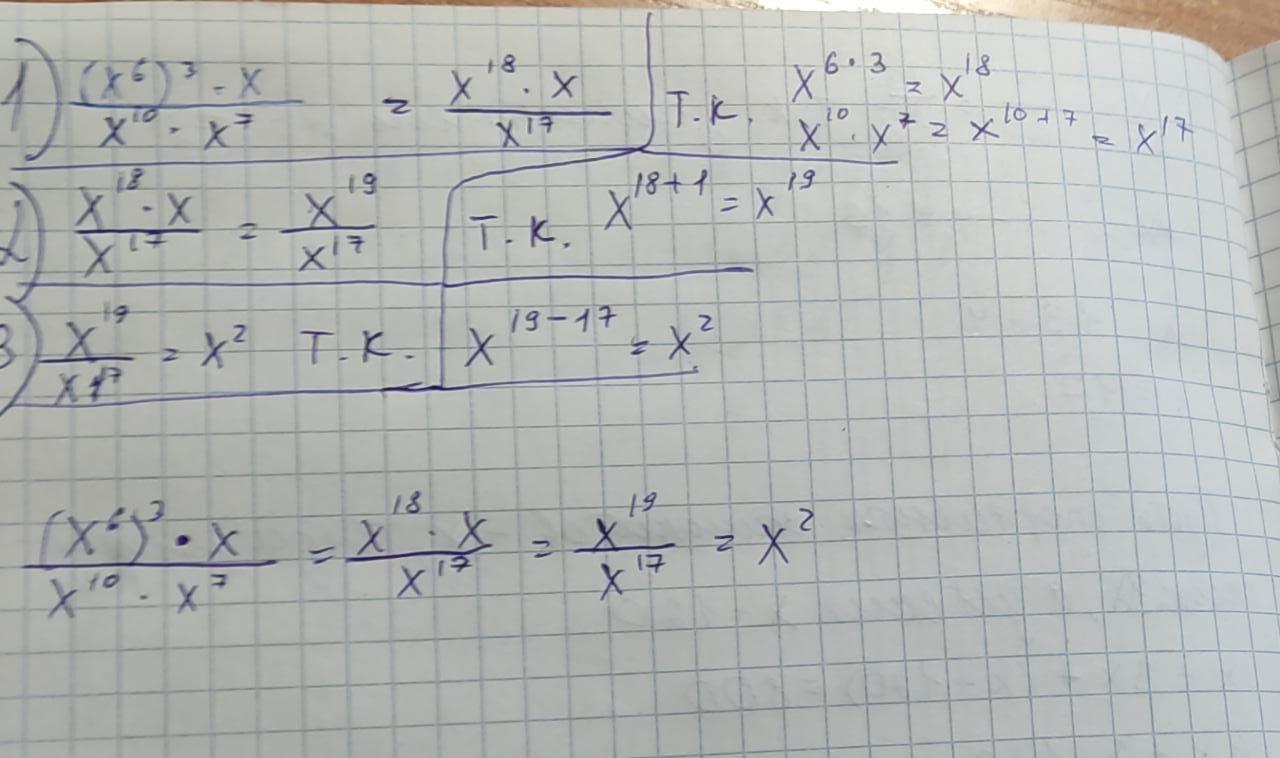 1) (x⁶)³ · x / x¹⁰ · x⁷ = x¹⁸ · x / x¹⁷ Т.К. x⁶·³ = x¹⁸
x¹⁰ · x⁷ = x¹⁰⁺⁷ = x¹⁷
2) x¹⁸ · x / x¹⁷ = x¹⁹ / x¹⁷ Т.К. x¹⁸⁺¹ = x¹⁹
3) x¹⁹ / x¹⁷ = x² Т.К. x¹⁹⁻¹⁷ = x²
(x⁶)³ · x / x¹⁰ · x⁷ = x¹⁸ · x / x¹⁷ = x¹⁹ / x¹⁷ = x²